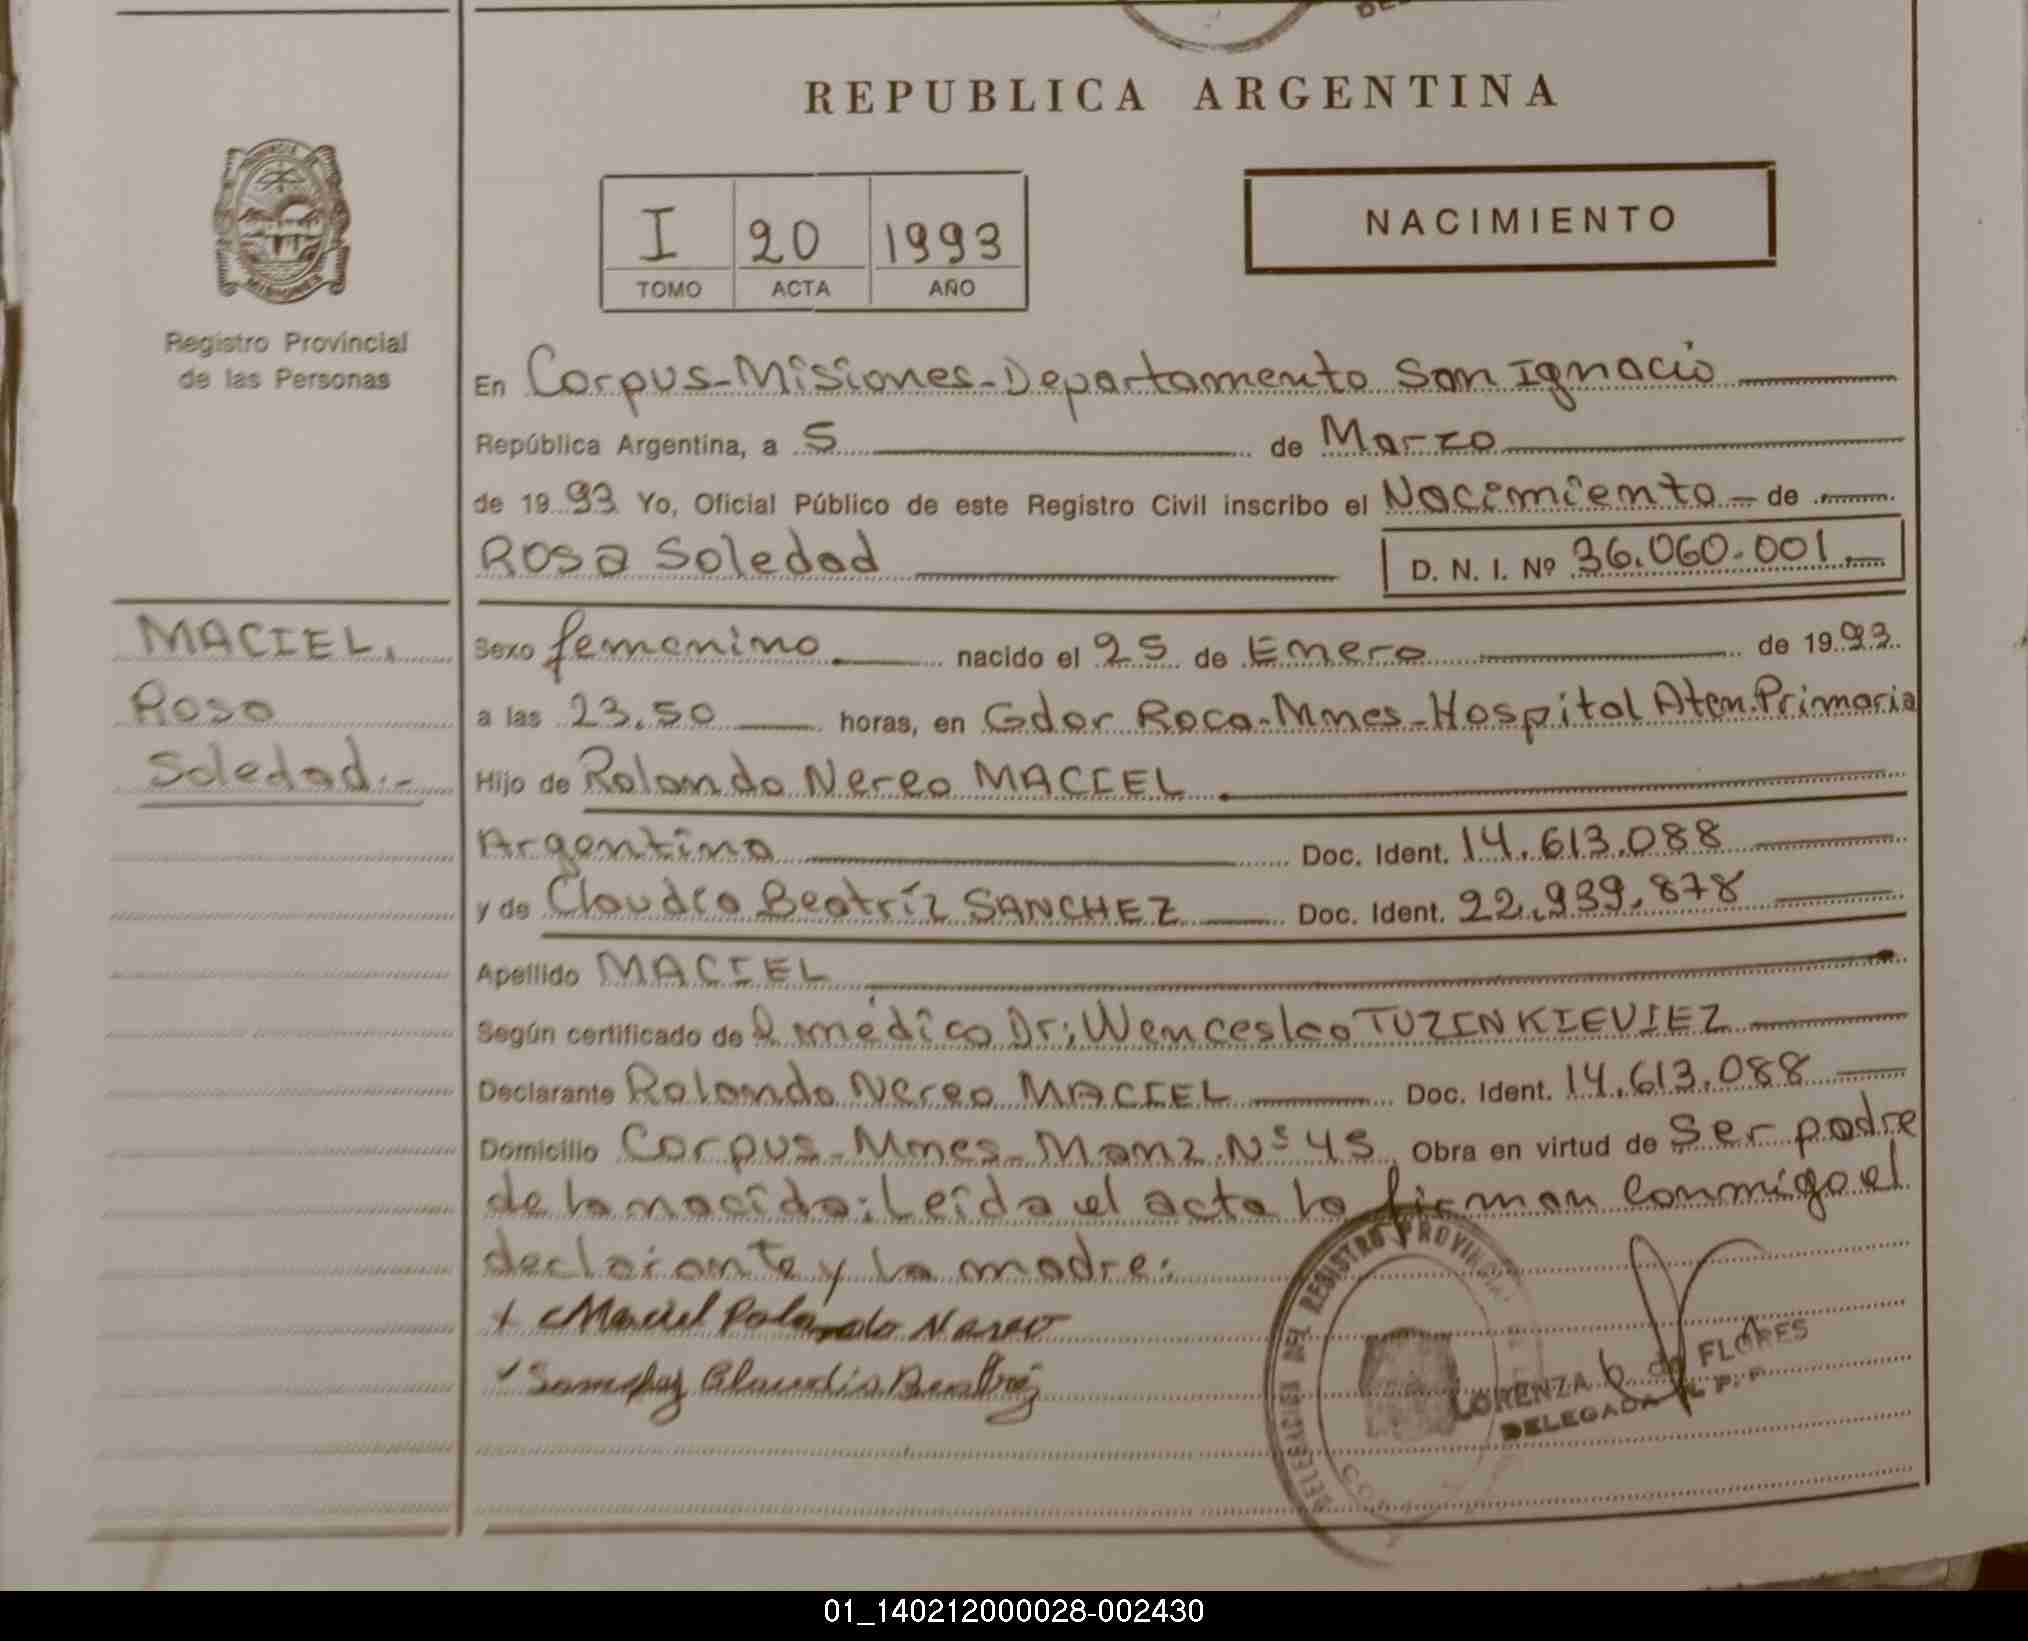 REPUBLICA ARGENTINA
PROVINCIA DE
MISIONES
Registro Provincial
de las Personas
I 20 1993
TOMO ACTA AÑO
NACIMIENTO
En Corpus-Misiones-Departamento San Ignacio
República Argentina, a 5 de Marzo
de 1993 Yo, Oficial Público de este Registro Civil inscribo el Nacimiento de
Rosa Soledad D. N. I. Nº 36.060.001.
MACIEL,
Rosa
Soledad.-
Sexo femenino nacido el 25 de Enero de 1993
a las 23.50 horas, en Gdor Roca-Mnes-Hospital Aten.Primaria
Hijo de Rolando Nereo MACIEL
Argentino Doc. Ident. 14.613.088
y de Claudia Beatríz SANCHEZ Doc. Ident. 22.939.878
Apellido MACIEL
Según certificado de l médico Dr; Wenceslao TUZINKIEVIEZ
Declarante Rolando Nereo MACIEL Doc. Ident. 14.613.088
Domicilio Corpus-Mnes-Manz.Nº 45 Obra en virtud de Ser padre
de la nacida: Leída el acta la firman conmigo el
declarante y la madre:
Maciel Rolando Nereo
Sanchez Claudia Beatriz
DELEGACION DEL REGISTRO PROVINCIAL
LORENZA G. de FLORES
DELEGADA R. P. P.
01_140212000028-002430